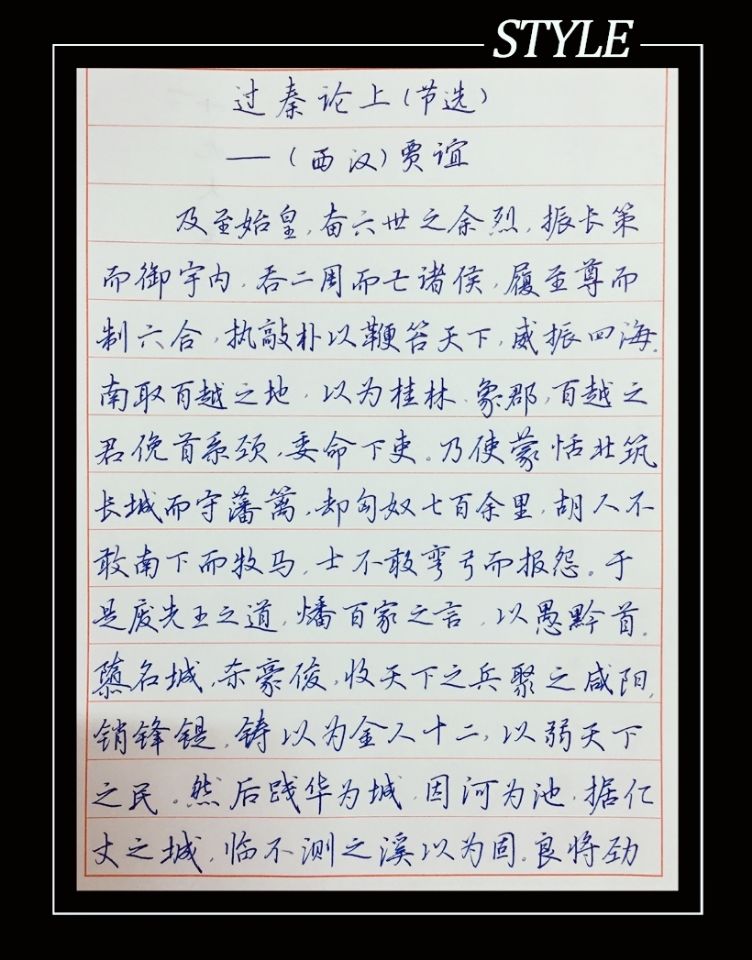 STYLE
过秦论上(节选)
——(西汉)贾谊
及至始皇,奋六世之余烈,振长策
而御宇内,吞二周而亡诸侯,履至尊而
制六合,执敲朴以鞭笞天下,威振四海.
南取百越之地,以为桂林、象郡,百越之
君俛首系颈,委命下吏。乃使蒙恬北筑
长城而守藩篱,却匈奴七百余里,胡人不
敢南下而牧马,士不敢弯弓而报怨。于
是废先王之道,燔百家之言,以愚黔首.
隳名城,杀豪俊,收天下之兵聚之咸阳,
销锋镝,铸以为金人十二,以弱天下
之民。然后践华为城,因河为池,据亿
丈之城,临不测之溪以为固。良将劲